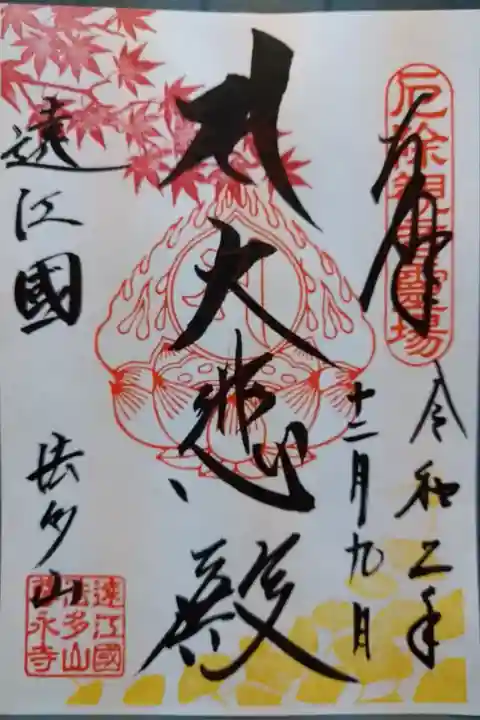 奉拝
厄除觀音靈場
令和二年
十二月九日
大悲殿
遠江國
法多山
遠江國
法多山
尊永寺